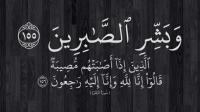 وَبَشِّرِ ٱلصَّـٰبِرِينَ ١٥٥
ٱلَّذِينَ إِذَآ أَصَـٰبَتْهُم مُّصِيبَةٌ
قَالُوٓا۟ إِنَّا لِلَّهِ وَإِنَّآ إِلَيْهِ رَٰجِعُونَ ١٥٦